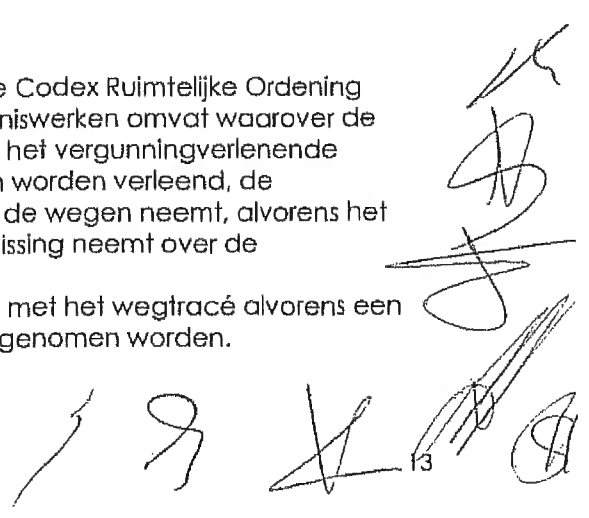 e Codex Ruimtelijke Ordening
niswerken omvat waarover de
het vergunningverlenende
n worden verleend, de
de wegen neemt, alvorens het
issing neemt over de
met het wegtracé alvorens een
genomen worden.
13